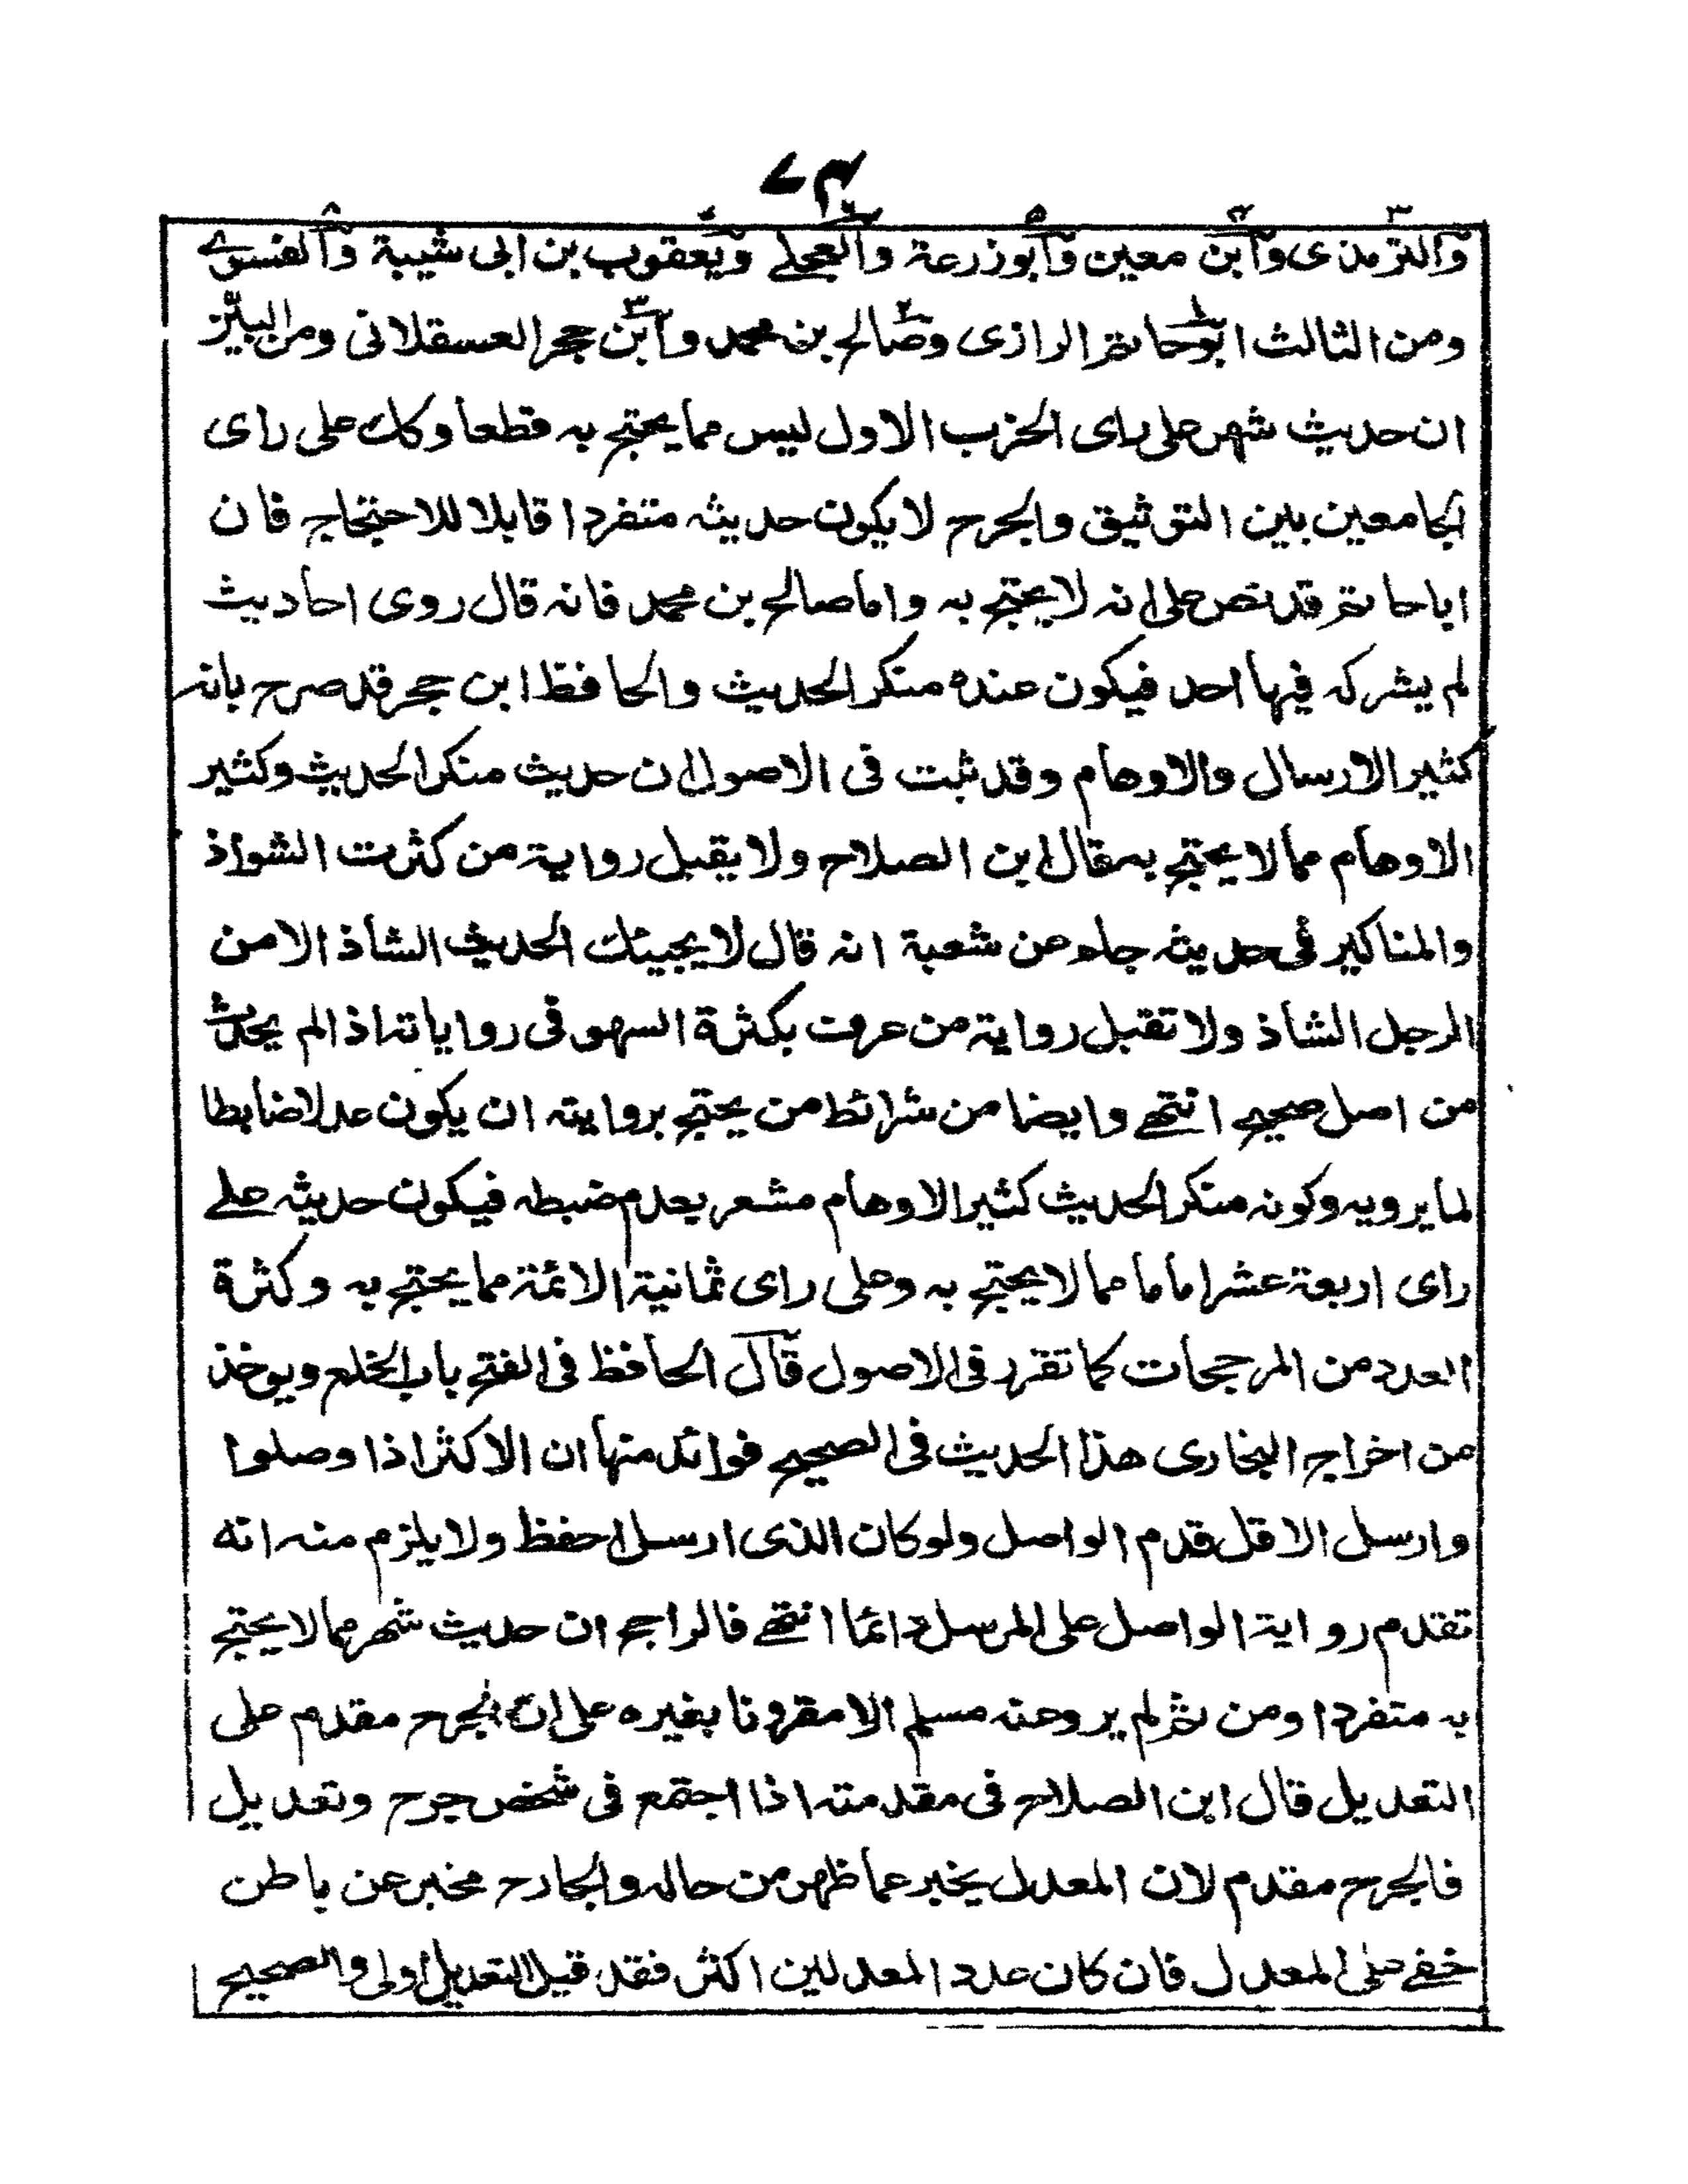 ٧٣
والترمذى وابن معين وابوزرعة والعجلے ويعقوب بن ابى شيبة والفسوے
ومن الثالث ابوحاتم الرازى وصالح بن محمد وابن حجر العسقلانى ومن البيّن
ان حديث شهر على راى الحزب الاول ليس مما يحتج به قطعا وكك على راى
الجامعين بين التوثيق والجرح لا يكون حديثه متفردا قابلا للاحتجاج فان
اباحاتم قد نص على انه لا يحتج به واما صالح بن محمد فانه قال روى احاديث
لم يشركه فيها احد فيكون عنده منكر الحديث والحافظ ابن حجر قد صرح بانه
كثير الارسال والاوهام وقد ثبت فى الاصول ان حديث منكر الحديث وكثير
الاوهام مما لا يحتج به قال ابن الصلاح ولا يقبل رواية من كثرت الشواذ
والمناكير فى حديثه جاء عن شعبة انه قال لا يجيئك الحديث الشاذ الا من
الرجل الشاذ ولا تقبل رواية من عرف بكثرة السهو فى رواياته اذا لم يحدث
من اصل صحيح انتهے وايضا من شرائط من يحتج بروايته ان يكون عدلا ضابطا
لما يرويه وكونه منكر الحديث كثير الاوهام مشعر بعدم ضبطه فيكون حديثه علے
راى اربعة عشر اماما مما لا يحتج به وعلى راى ثمانية الائمة مما يحتج به وكثرة
العدد من المرجحات كما تقرر فى الاصول قال الحافظ فى الفتح باب الخلع ويوخذ
من اخراج البخارى هذا الحديث فى الصحيح فوائد منها ان الاكثر اذا وصلوا
وارسل الاقل قدم الواصل ولو كان الذى ارسل احفظ ولا يلزم منه انه
تقدم رواية الواصل على المرسل دائما انتهے فالراجح ان حديث شهر مما لا يحتج
به متفردا ومن ثم لم يروعنه مسلم الا مقرونا بغيره على ان الجرح مقدم على
التعديل قال ابن الصلاح فى مقدمته اذا اجتمع فى شخص جرح وتعديل
فالجرح مقدم لان المعدل يخبر عما ظهر من حاله والجارح مخبر عن باطن
خفے على المعدل فان كان عدد المعدلين اكثر فقد قيل التعديل اولى والصحيح